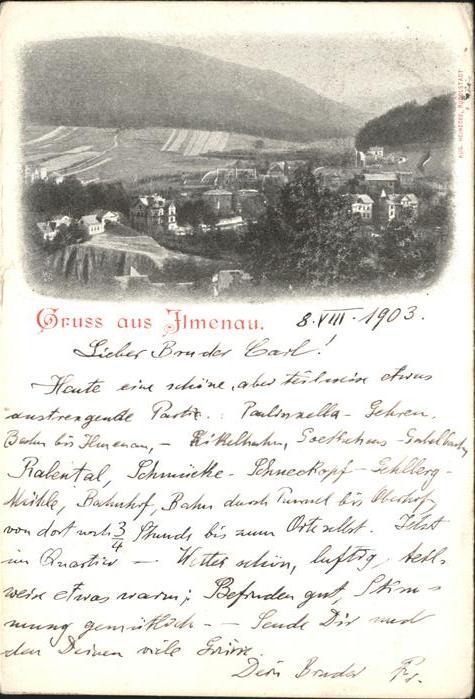 Gruss aus Ilmenau. 8. VIII. 1903.
Lieber Bruder Carl!
Heute eine schöne, aber teilweise etwas
anstrengende Partie: Paulinzella - Gehren,
Bahn bis Ilmenau, - Kikelhahn, Goethehaus - Gabelbach,
Rabental, Schmücke - Schneekopf - Gehlberg-
Mühle, Bahnhof, Bahn durch Tunnel bis Oberhof,
von dort noch 3/4 Stunde bis zum Orte selbst. Jetzt
im Quartier — Wetter schön, luftig, teil-
weise etwas warm; Befinden gut, Stim-
mung gemütlich - - Sende Dir und
den Deinen viele Grüsse.
Dein Bruder Fr.